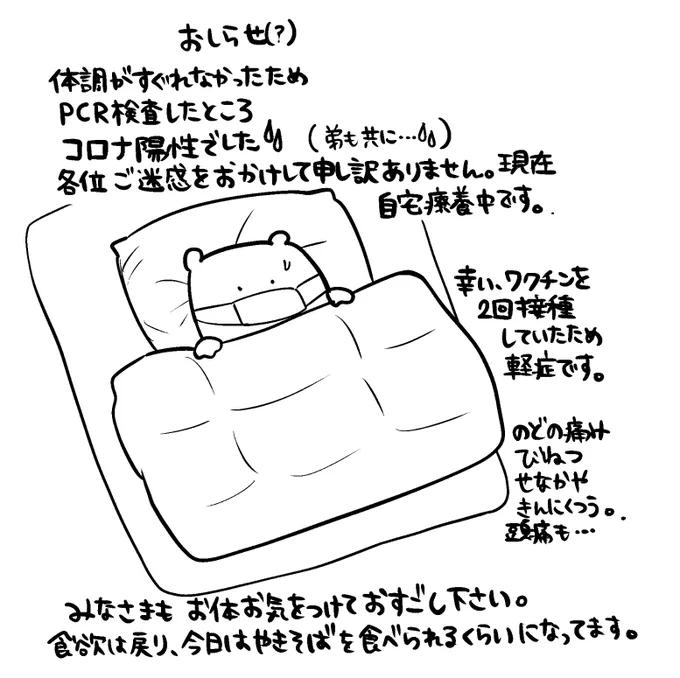 おしらせ(?)
体調がすぐれなかったため
PCR検査したところ
コロナ陽性でした (弟も共に…)
各位ご迷惑をおかけして申し訳ありません。現在
自宅療養中です。
幸い、ワクチンを
2回接種
していたため
軽症です。
のどの痛み
びねつ
せなかや
きんにくつう。
頭痛も…
みなさまも お体お気をつけておすごし下さい。
食欲は戻り、今日はやきそばを食べられるくらいになってます。